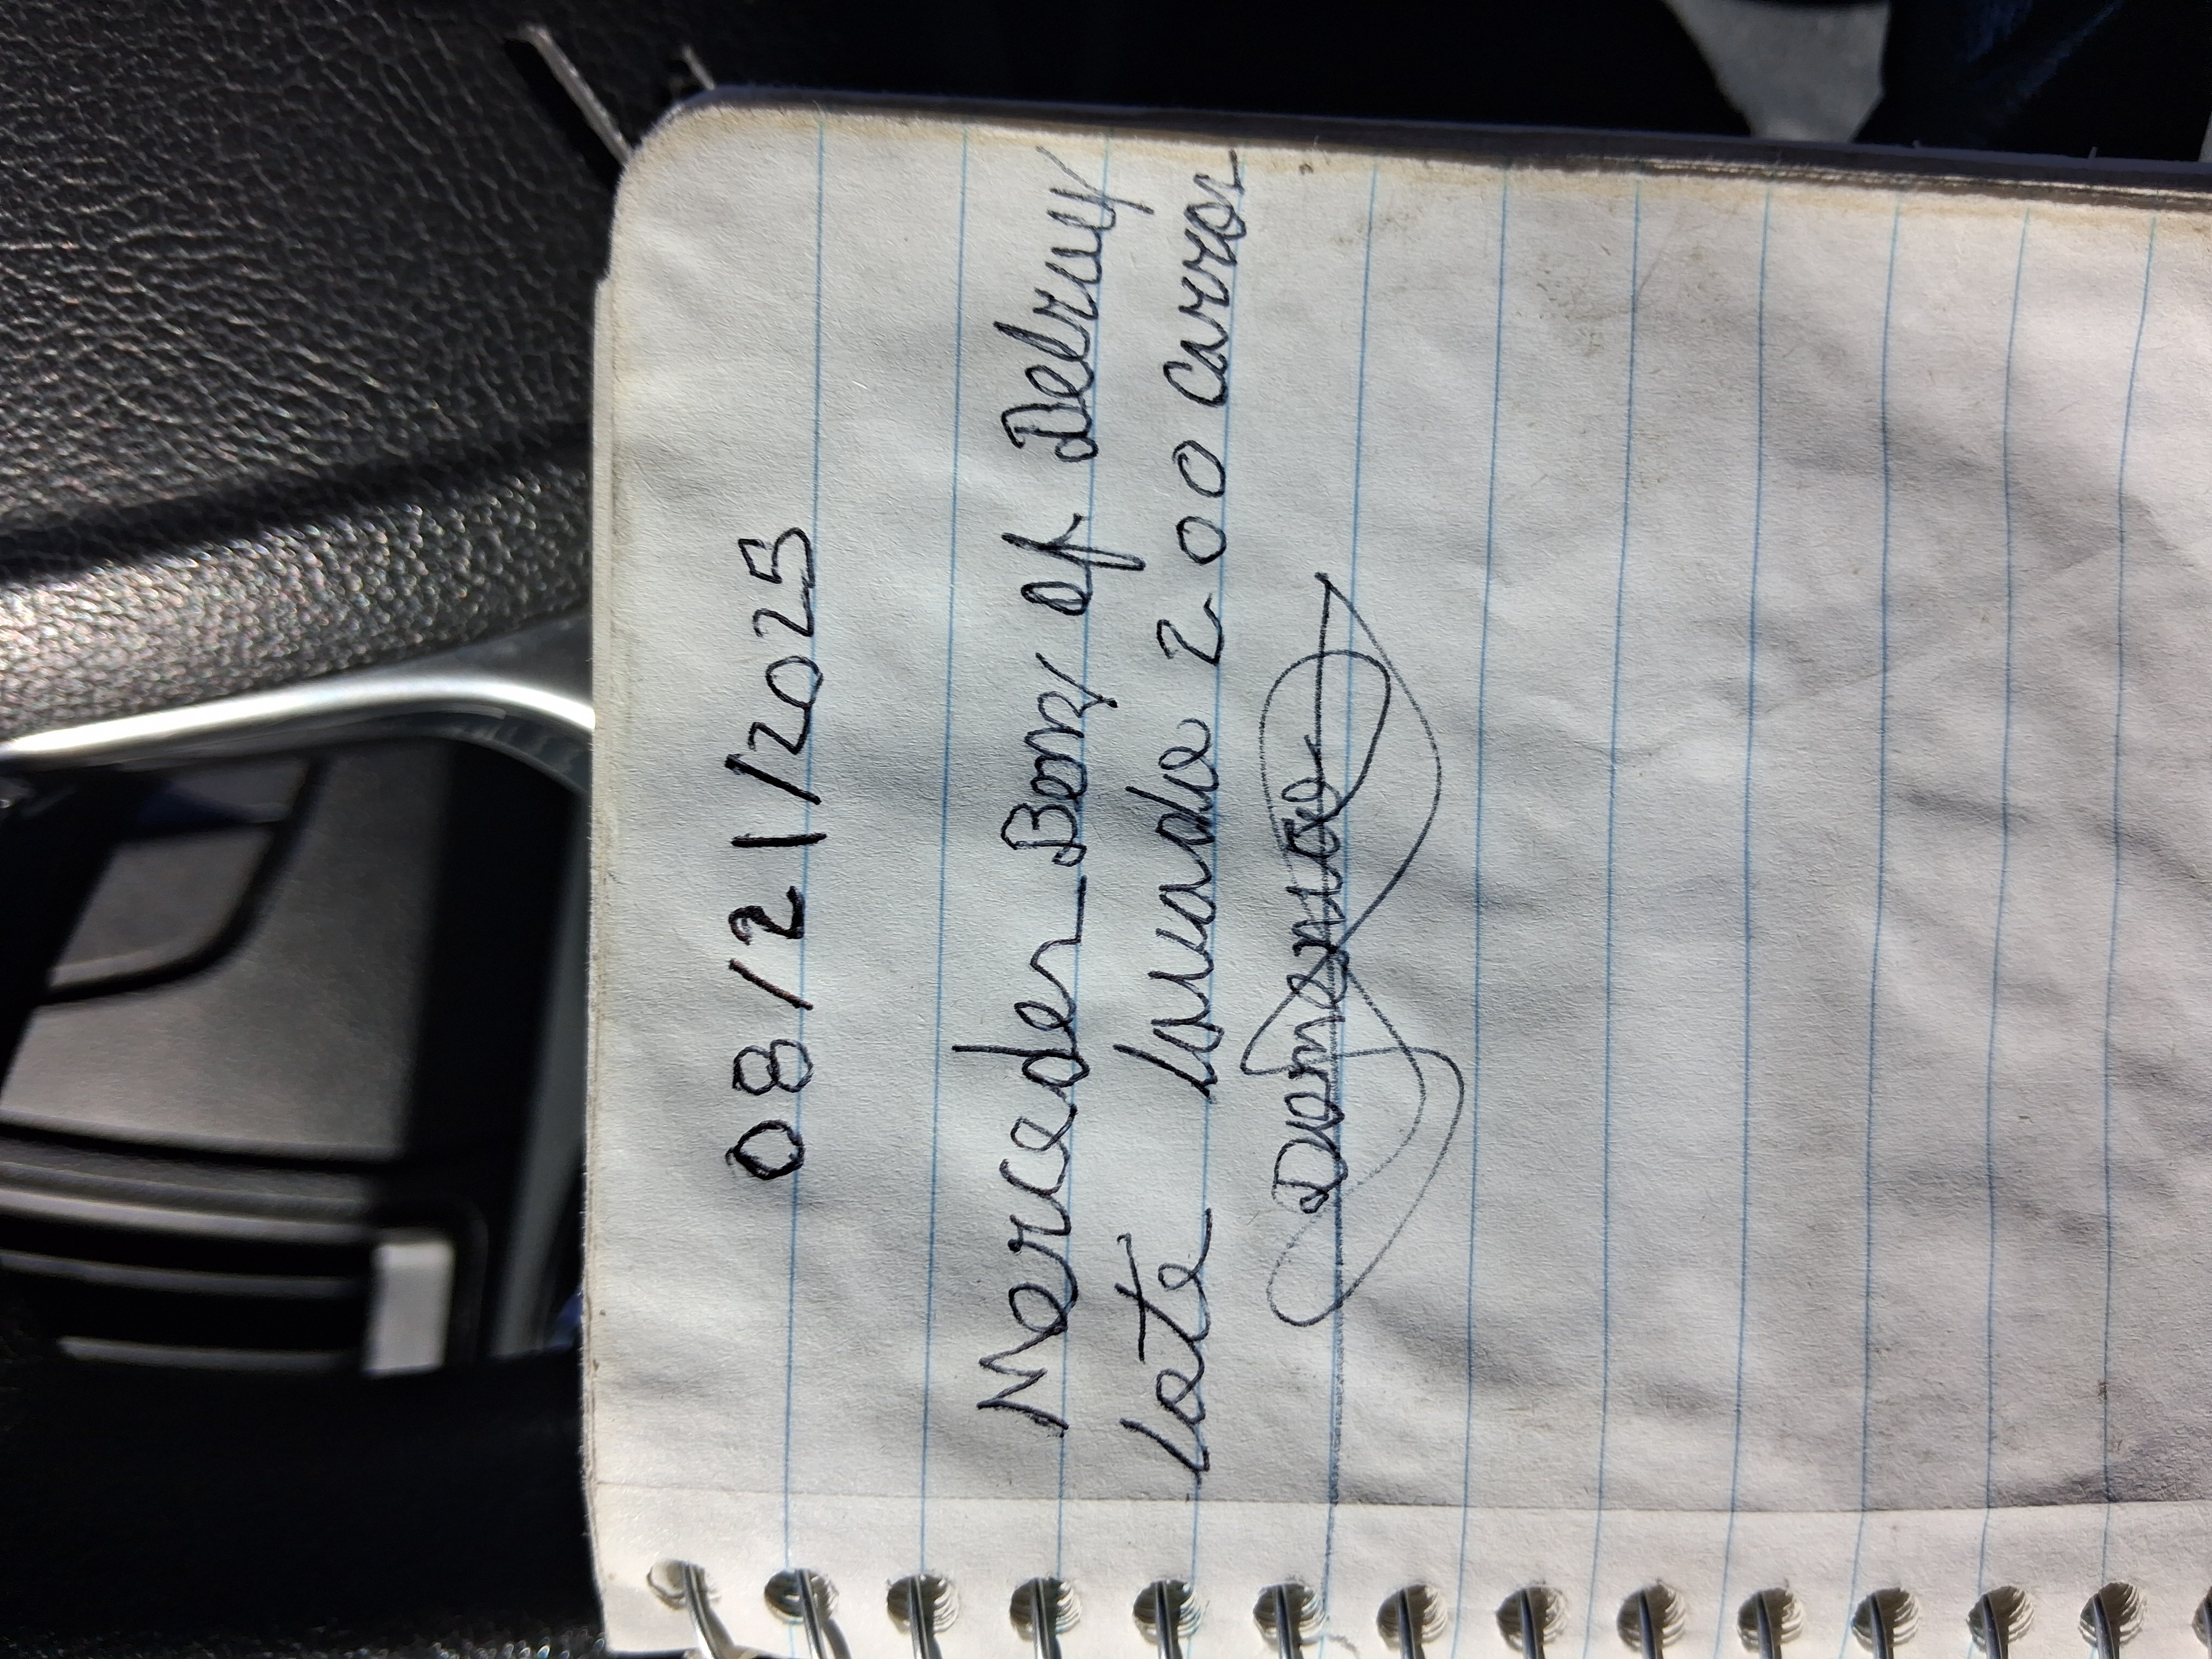 08/21/2025
Mercedes Benz of Delray
Lote lavado 200 carros
Domenico